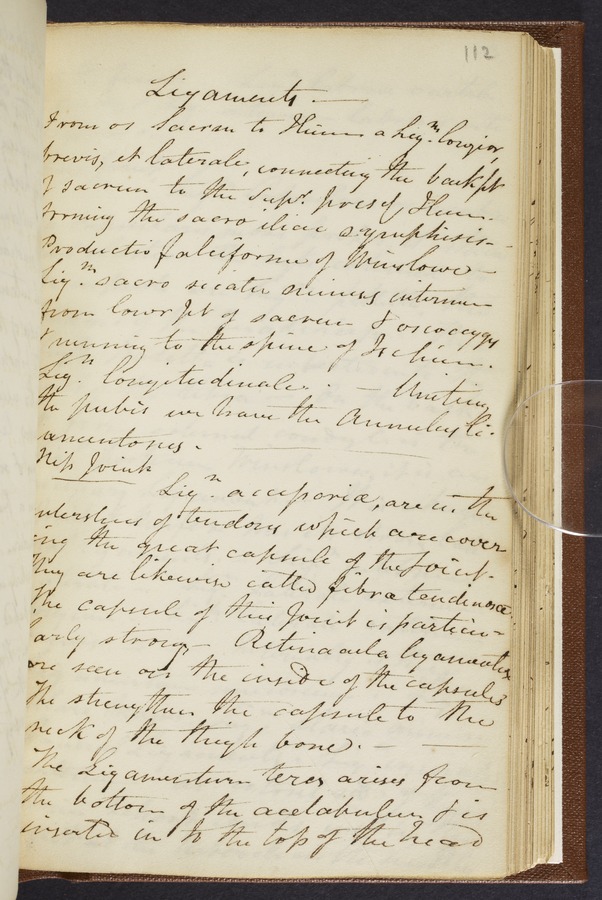 112
Ligaments. —
From os Sacrum to Ilium a Ligm. longior,
brevis, et laterale, connecting the back pt
of sacrum to the Supr. pres of Ilium.
forming the sacro iliac symphisis —
Productio falciforme of Winslowe —
Ligm. sacro
from lower pt of sacrum & oscoccygis
& running to the spine of Ischium.
Ligm. longitudinale. — Uniting
the pubis we have the Annulus li-
amentosus. —
Hip Joint
Lign. accessoria, are in the
of tendons which are cover
ing the great capsule of the Joint.
They are likewise called fibræ tendinosæ.
The capsule of this Joint is particu-
larly strong — Retinacula ligamentosa
are seen on the inside of the capsules
The strengthen the capsule to the
neck of the thigh bone. — —
The Ligamentum teres arises from
the bottom of the acetabulum & is
inserted in to the top of the head